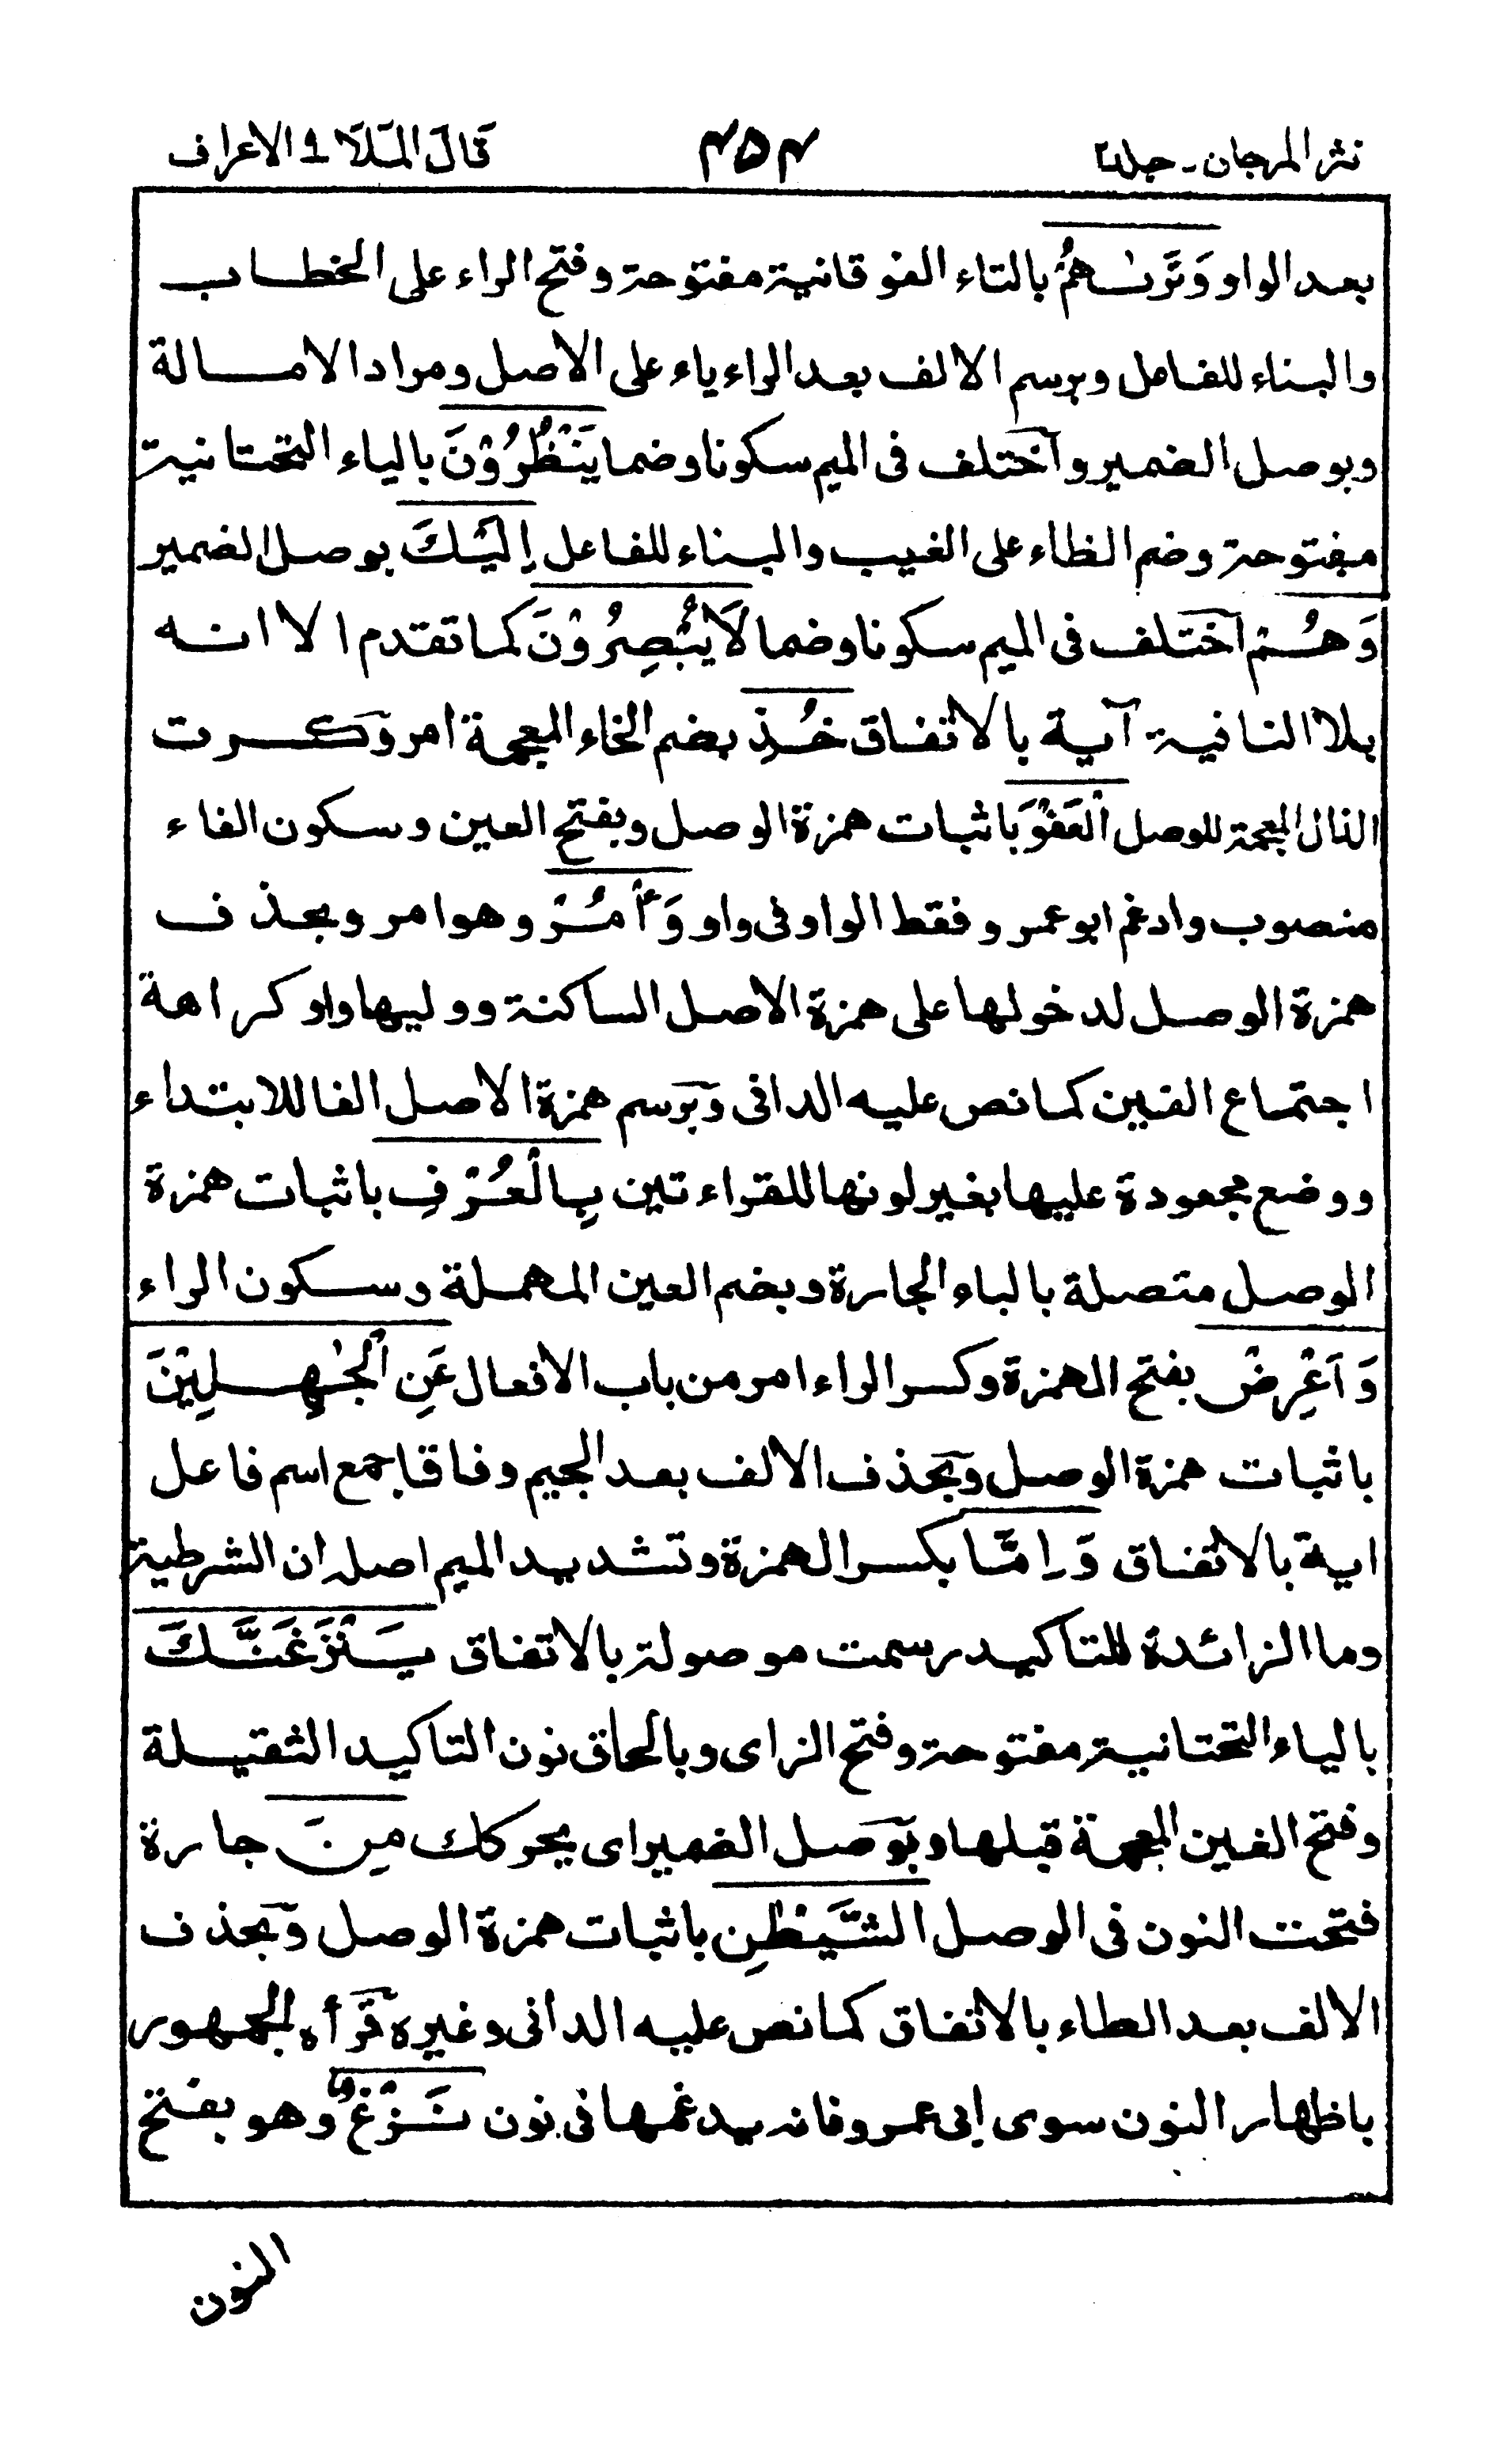 نثر المرجان - جلد٢ ٤٥٤ قَالَ الْمَلَأُ ٩ الاعراف
بعد الواو وَتَرٰىهُمْ بالتاء الفوقانية مفتوحة وفتح الراء على الخطاب
والبناء للفاعل وبرسم الالف بعد الراء ياء على الاصل ومراد الامالة
وبوصل الضمير واختلف فى الميم سكونا وضما يَنْظُرُوْنَ بالياء التحتانية
مفتوحة وضم الظاء على الغيب والبناء للفاعل اِلَيْكَ بوصل الضمير
وَهُمْ اختلف فى الميم سكونا وضما لَا يُبْصِرُوْنَ كما تقدم الا انه
بلا النافية آية بالاتفاق خُذِ بضم الخاء المعجمة امر وكسرت
الذال المعجمة للوصل الْعَفْوَ باثبات همزة الوصل وبفتح العين وسكون الفاء
منصوب وادغم ابو عمرو فقط الواو فى واو وَأْمُرْ وهو امر وبحذف
همزة الوصل لدخولها على همزة الاصل الساكنة ووليها واو كراهة
اجتماع الفين كما نص عليه الدانى وبرسم همزة الاصل الفا للابتداء
ووضع مجعودة عليها بغير لونها للقراءتين بِالْعُرْفِ باثبات همزة
الوصل متصلة بالباء الجارة وبضم العين المهملة وسكون الراء
وَاَعْرِضْ بفتح الهمزة وكسر الراء امر من باب الافعال عَنِ الْجٰهِلِيْنَ
باثبات همزة الوصل وبحذف الالف بعد الجيم وفاقا جمع اسم فاعل
اية بالاتفاق وَاِمَّا بكسر الهمزة وتشديد الميم اصله ان الشرطية
وما الزائدة للتاكيد رسمت موصولة بالاتفاق يَنْزَغَنَّكَ
بالياء التحتانية مفتوحة وفتح الزاى وبالحاق نون التاكيد الثقيلة
وفتح الغين المعجمة قبلها وبوصل الضمير اى يحركك مِنَ جارة
فتحت النون فى الوصل الشَّيْطٰنِ باثبات همزة الوصل وبحذف
الالف بعد الطاء بالاتفاق كما نص عليه الدانى وغيره قرأه الجمهور
باظهار النون سوى ابى عمرو فانه يدغمها فى نون نَزْغٌ وهو بفتح
النون